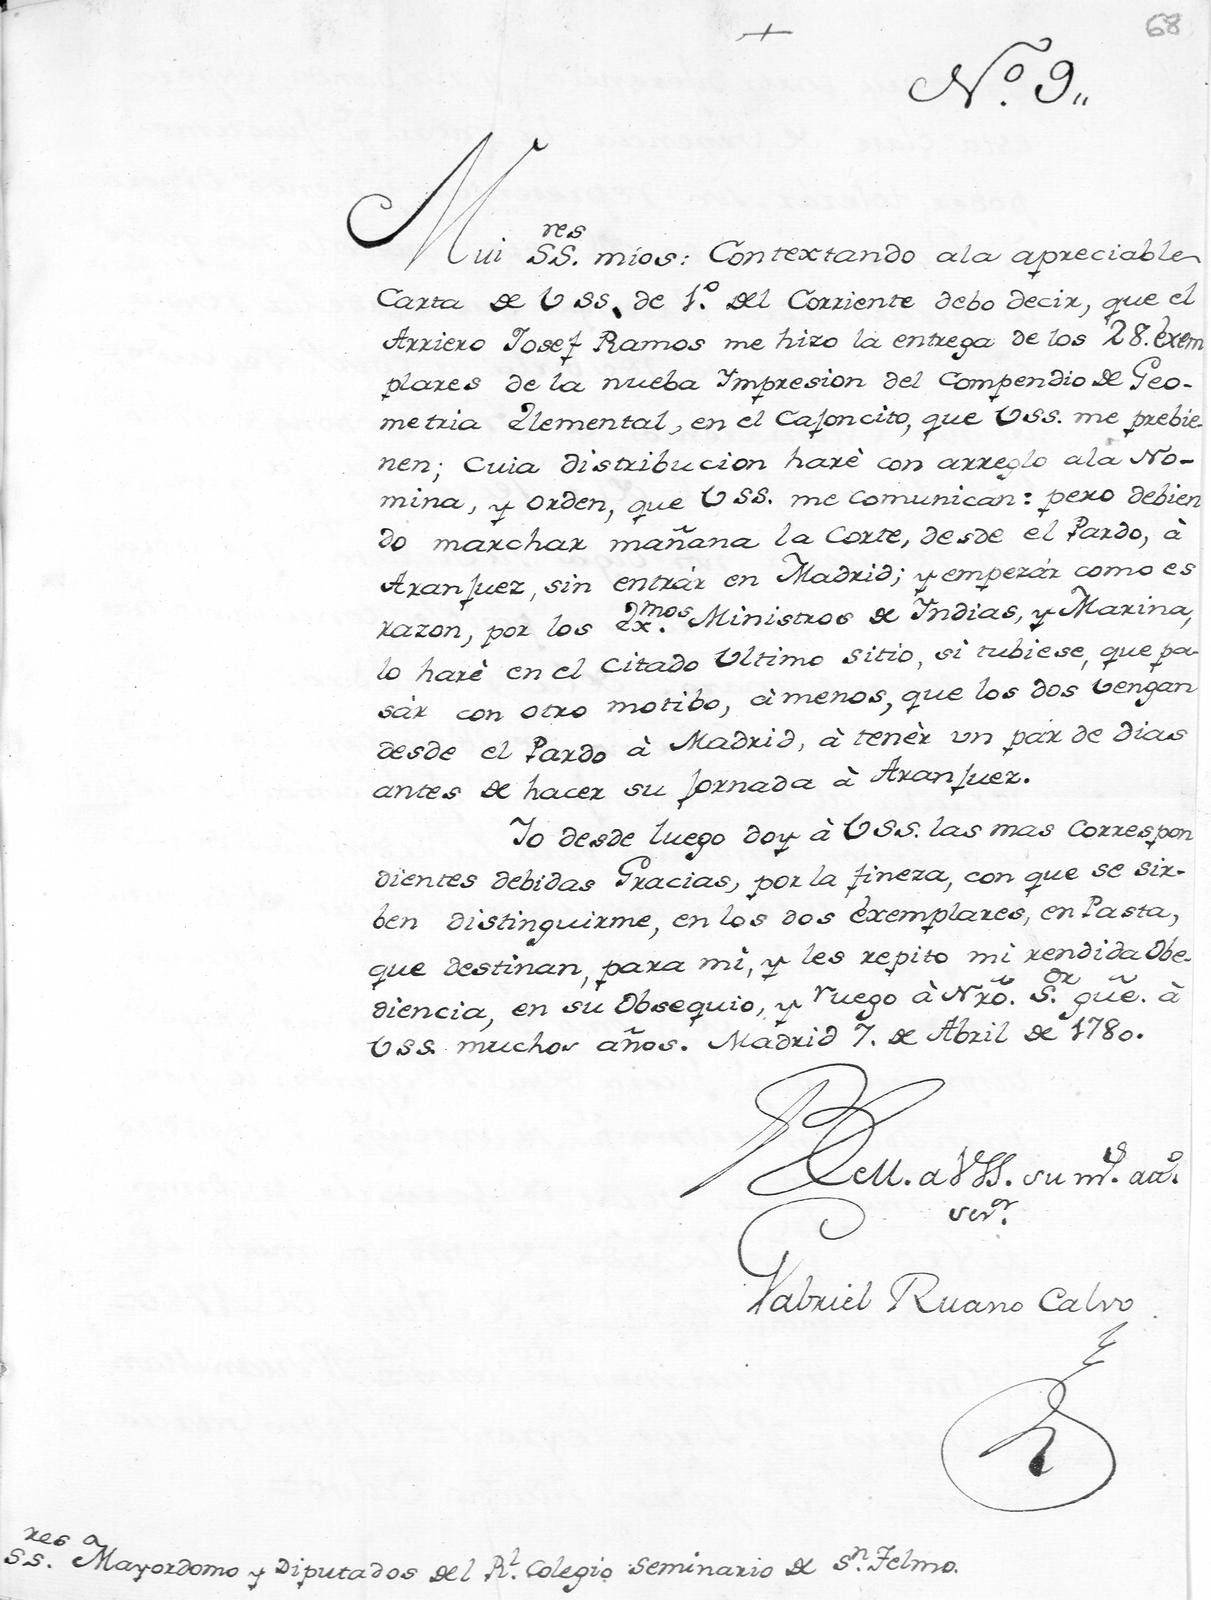 68
+
N.º 9„
Mui SS.res mios: Contextando ala apreciable
Carta de VSS, de 1.º del Corriente debo decir, que el
Arriero Josef Ramos me hizo la entrega de los 28. exem
plares de la nueba Impresion del Compendio de Geo-
metria Elemental, en el Cajoncito, que VSS. me prebie-
nen; cuia distribucion harè con arreglo ala No-
mina, y orden, que VSS. me comunican: pero debien
do marchar mañana la Corte, desde el Pardo, à
Aranjuez, sin entrár en Madrid; y empezár como es
razon, por los Ex.mos Ministros de Indias, y Marina,
lo harè en el citado Ultimo sitio, si tubiese, que pa-
sár con otro motibo, à menos, que los dos Vengan
desde el Pardo à Madrid, à tenèr un par de dias
antes de hacer su jornada à Aranjuez.
Io desde luego doy à VSS. las mas correspon
dientes debidas Gracias, por la fineza, con que se sir-
ben distinguirme, en los dos exemplares, en Pasta,
que destinan, para mi, y les repito mi rendida Obe-
diencia, en su Obsequio, y ruego à Nrõ. S.or gũe. à
VSS. muchos años. Madrid 7. de Abril de 1780.
a VSS. su m.s
ser.or
Gabriel Ruano Calvo
SS.res Mayordomo y Diputados del R.l Colegio Seminario de S.n Telmo.